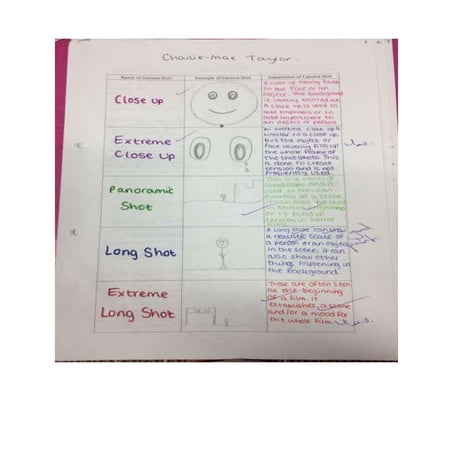 Charlie-Mae Taylor.
Name of Camera Shot
Example of Camera Shot
Explanation of Camera Shot
Close up
A close up
face or an
object. The background
is usually blurred out.
A close up is used to
add emphasis or to
add importance to
an object or person
Extreme
Close Up
An extreme close up is
similar to a close up,
but the object or
face usually fills up
the whole frame of
the shot/photo. This
is done to create
tension and is not
frequently used.
Panoramic
Shot
This is a
landscape and it
of a scene.
or to build up
tension in horror
Long Shot
A long shot can show
a realistic scale of
a person or an object
in the scene. It can
also show other
things happening in
the background.
Extreme
Long Shot
These are often seen
at the beginning
of a film. It
establishes a scene
and/or a mood for
the whole film